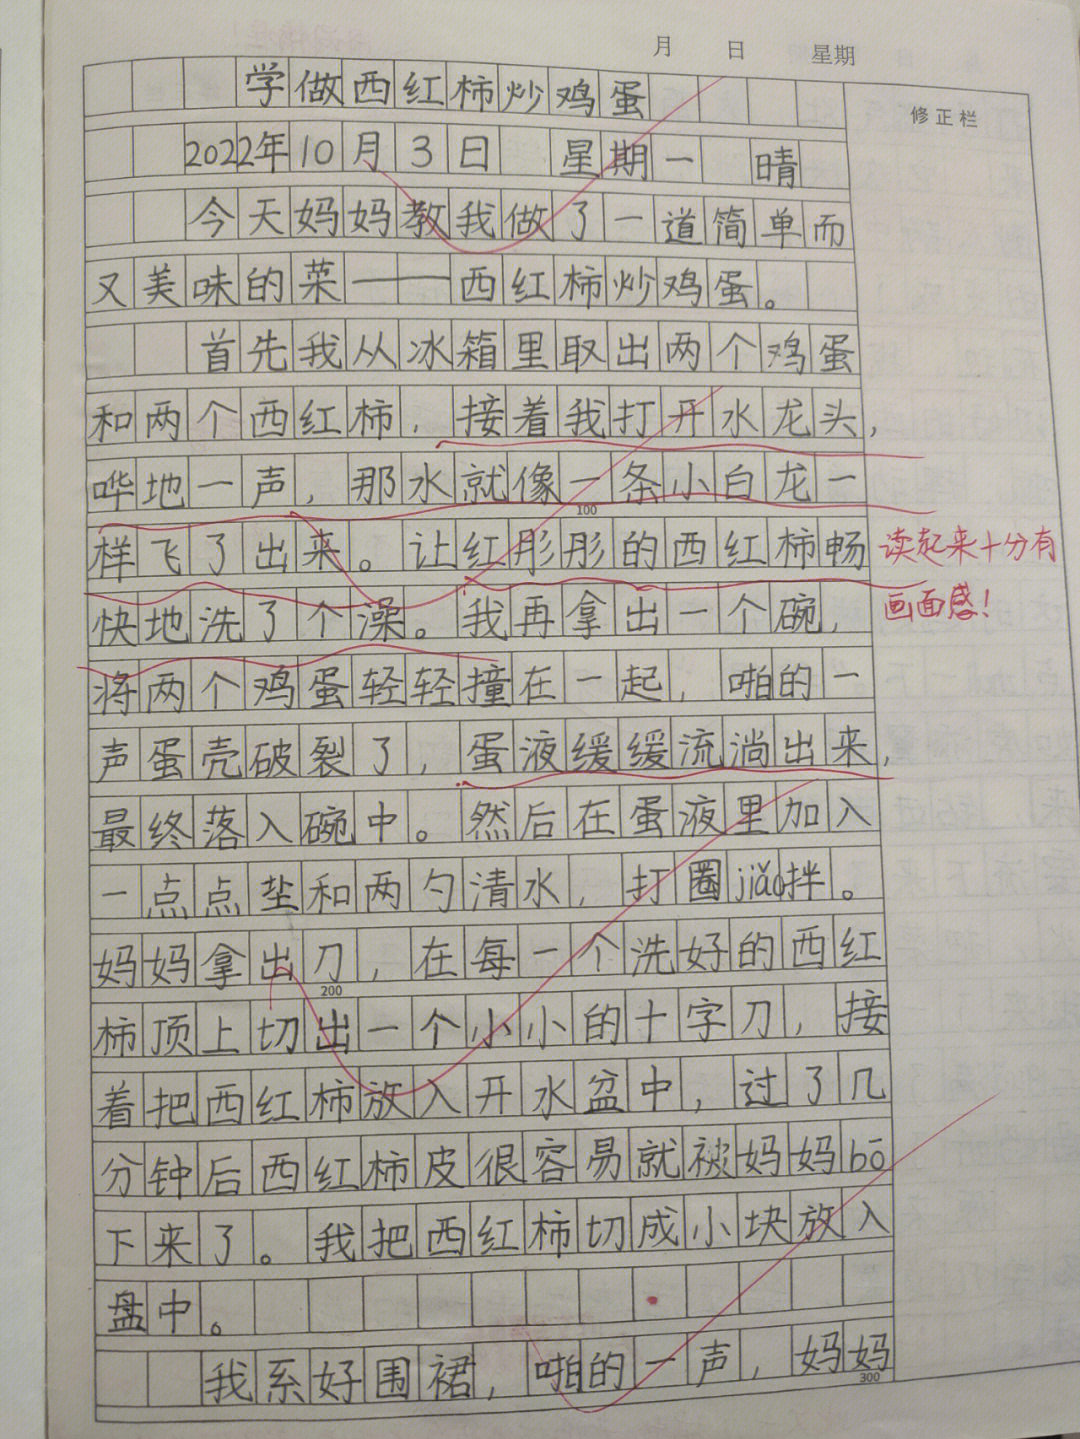 月 日 星期
修正栏
学做西红柿炒鸡蛋
2022年10月3日 星期一 晴
今天妈妈教我做了一道简单而
又美味的菜——西红柿炒鸡蛋。
首先我从冰箱里取出两个鸡蛋
和两个西红柿，接着我打开水龙头，
哗地一声，那水就像一条小白龙一
100
样飞了出来。让红彤彤的西红柿畅
读起来十分有
快地洗了个澡。我再拿出一个碗，
画面感！
将两个鸡蛋轻轻撞在一起，啪的一
声蛋壳破裂了，蛋液缓缓流淌出来，
最终落入碗中。然后在蛋液里加入
一点点盐和两勺清水，打圈jiǎo拌。
妈妈拿出刀，在每一个洗好的西红
200
柿顶上切出一个小小的十字刀，接
着把西红柿放入开水盆中，过了几
分钟后西红柿皮很容易就被妈妈bō
下来了。我把西红柿切成小块放入
盘中。
我系好围裙，啪的一声，妈妈
300